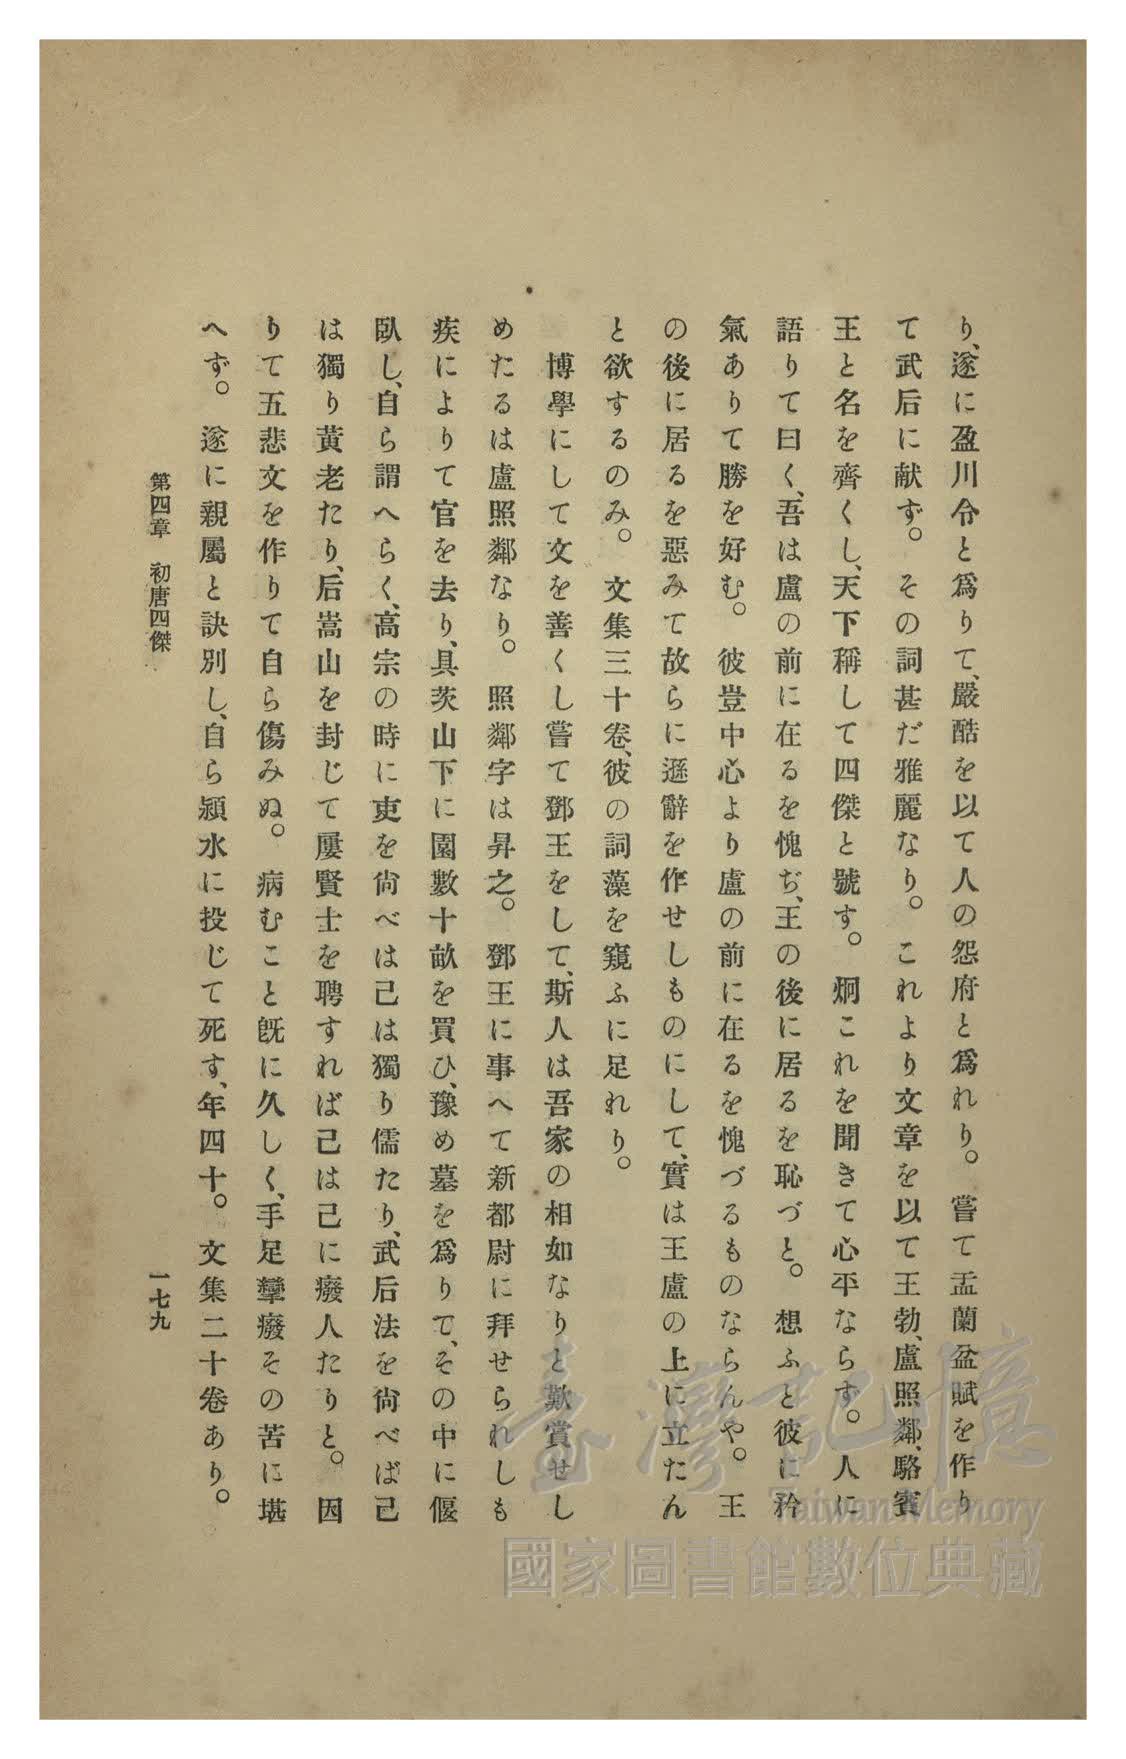 り、遂に盈川令と爲りて、嚴酷を以て人の怨府と爲れり。嘗て盂蘭盆賦を作り
て武后に献ず。その詞甚だ雅麗なり。これより文章を以て王勃、盧照鄰、駱賓
王と名を齊くし、天下稱して四傑と號す。炯これを聞きて心平ならす。人に
語りて曰く、吾は盧の前に在るを愧ぢ、王の後に居るを恥づと。想ふと彼に矜
氣ありて勝を好む。彼豈中心より盧の前に在るを愧づるものならんや。王
の後に居るを惡みて故らに遜辭を作せしものにして、實は王盧の上に立たん
と欲するのみ。文集三十卷、彼の詞藻を窺ふに足れり。
博學にして文を善くし嘗て鄧王をして、斯人は吾家の相如なりと歎賞せし
めたるは盧照鄰なり。照鄰字は昇之。鄧王に事へて新都尉に拜せられしも
疾によりて官を去り、具茨山下に園數十畝を買ひ、豫め墓を爲りて、その中に偃
臥し、自ら謂へらく、高宗の時に吏を尙べは己は獨り儒たり、武后法を尙べば己
は獨り黃老たり、后嵩山を封じて屢賢士を聘すれば己は己に癈人たりと。因
りて五悲文を作りて自ら傷みぬ。病むこと旣に久しく、手足攣癈その苦に堪
へず。遂に親屬と訣別し、自ら潁水に投じて死す、年四十。文集二十卷あり。
第四章　初唐四傑
一七九
臺灣記憶
Taiwan Memory
國家圖書館數位典藏